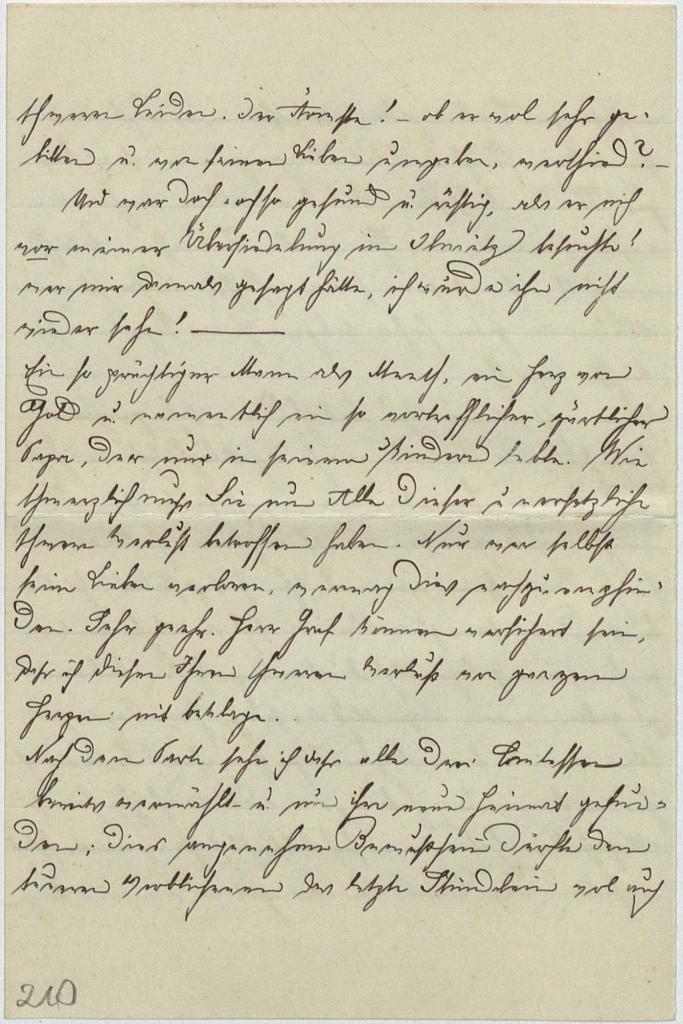 schweren Leiden. Der Ärmste! – ob er wol sehr ge-
litten u. von seinen Lieben umgeben, verschied? –
Und war doch noch so gesund u. rüstig, als er mich
vor meiner Übersiedelung in Olmütz besuchte!
wer mir damals gesagt hätte, ich würde ihn nicht
wieder sehen! ———
Ein so prächtiger Mann als Mensch, ein Herz von
Gold u. namentlich ein so vortrefflicher, zärtlicher
Papa, der nur in seinen Kindern lebte. Wie
schmerzlich muß Sie nun Alle dieser unersetzliche
schwere Verlust betroffen haben. Nur wer selbst
seine Lieben verloren, vermag dies nachzuempfin-
den. Sehr geehr. Herr Graf können versichert sein,
daß ich diesen Ihren schweren Verlust von ganzem
Herzen mit beklage.
Nach dem Parte sehe ich daß alle drei Comtessen
bereits vermählt u. nun ihre neue Heimat gefun-
den; dies angenehme Bewußtsein dürfte dem
teueren Verblichenen das letzte Stündlein wol auch
210